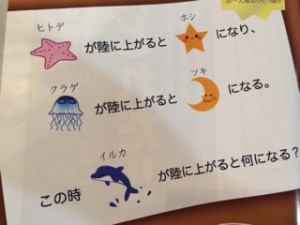 ヒトデ ホシ
が陸に上がると になり、
クラゲ ツキ
が陸に上がると になる。
イルカ
この時 が陸に上がると何になる?